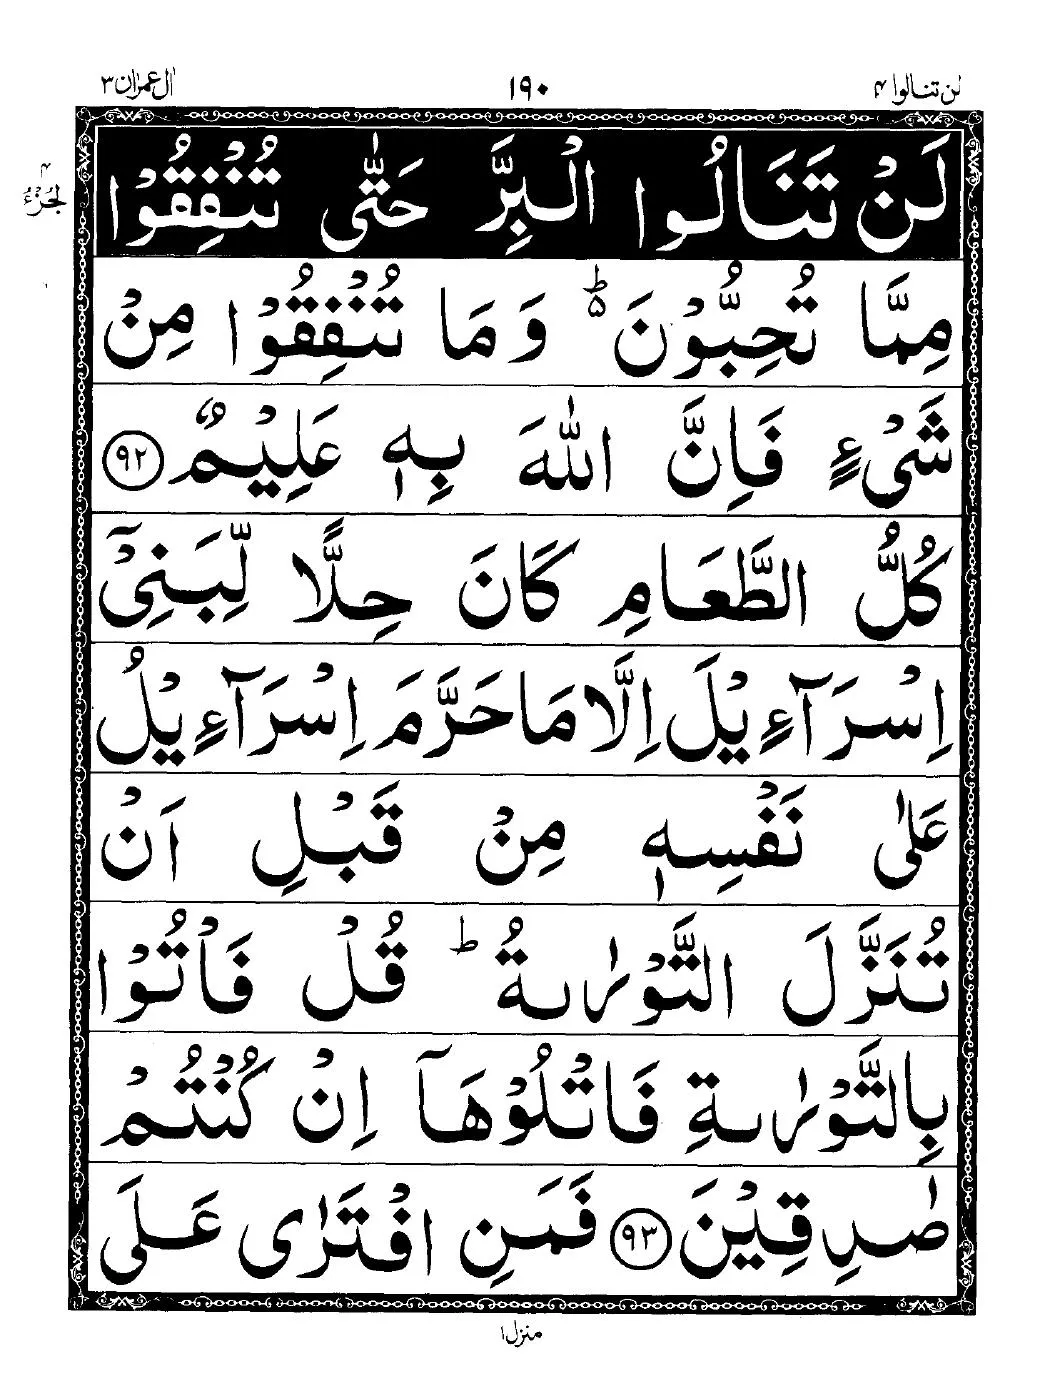 لن تنالوا ۴
۱۹۰
اٰل عمرٰن ۳
لَنْ تَنَالُوا الْبِرَّ حَتّٰى تُنْفِقُوْا
الجزء ۴
مِمَّا تُحِبُّوْنَ ؕ۬ وَمَا تُنْفِقُوْا مِنْ
شَیْءٍ فَاِنَّ اللّٰهَ بِهٖ عَلِیْمٌ ﴿۹۲﴾
كُلُّ الطَّعَامِ كَانَ حِلًّا لِّبَنِیْۤ
اِسْرَآءِیْلَ اِلَّا مَا حَرَّمَ اِسْرَآءِیْلُ
عَلٰى نَفْسِهٖ مِنْ قَبْلِ اَنْ
تُنَزَّلَ التَّوْرٰىةُ ؕ قُلْ فَاْتُوْا
بِالتَّوْرٰىةِ فَاتْلُوْهَاۤ اِنْ كُنْتُمْ
صٰدِقِیْنَ ﴿۹۳﴾ فَمَنِ افْتَرٰى عَلَى
منزل ۱